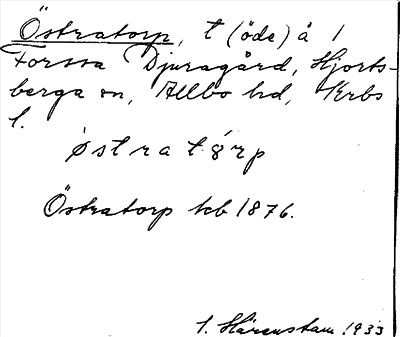 Östratorp, t (öde) å 1
Forssa Djuragård, Hjorts-
berga sn, Allbo hd, Krbs
l.
östratórp
Östratorp kb 1876.
S. Härenstam 1933